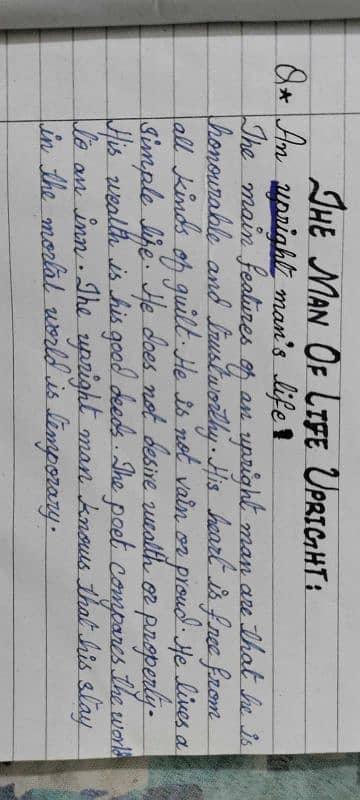 THE MAN OF LIFE UPRIGHT:
Q* An upright man's life!
The main features of an upright man are that he is
honourable and trustworthy. His heart is free from
all kinds of guilt. He is not vain or proud. He lives a
simple life. He does not desire wealth or property.
His wealth is his good deeds. The poet compares the world
to an inn. The upright man knows that his stay
in the mortal world is temporary.